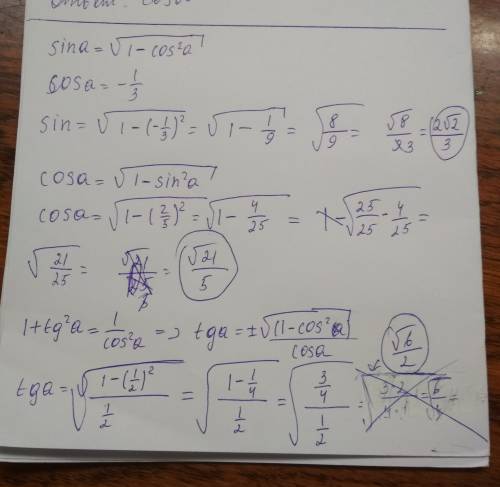 Ответ: cosa
sina = √(1 - cos²a)
cosa = -1/3
sin = √(1 - (-1/3)²) = √(1 - 1/9) = √(8/9) = √8/3 = 2√2/3
cosa = √(1 - sin²a)
cosa = √(1 - (2/5)²) = √(1 - 4/25) = √(25/25 - 4/25) =
√(21/25) = √21/5
1 + tg²a = 1/cos²a => tga = ±√(1 - cos²a)/cosa
√6/2
tga = √((1 - (1/2)²)/(1/2)) = √((1 - 1/4)/(1/2)) = √((3/4)/(1/2)) =